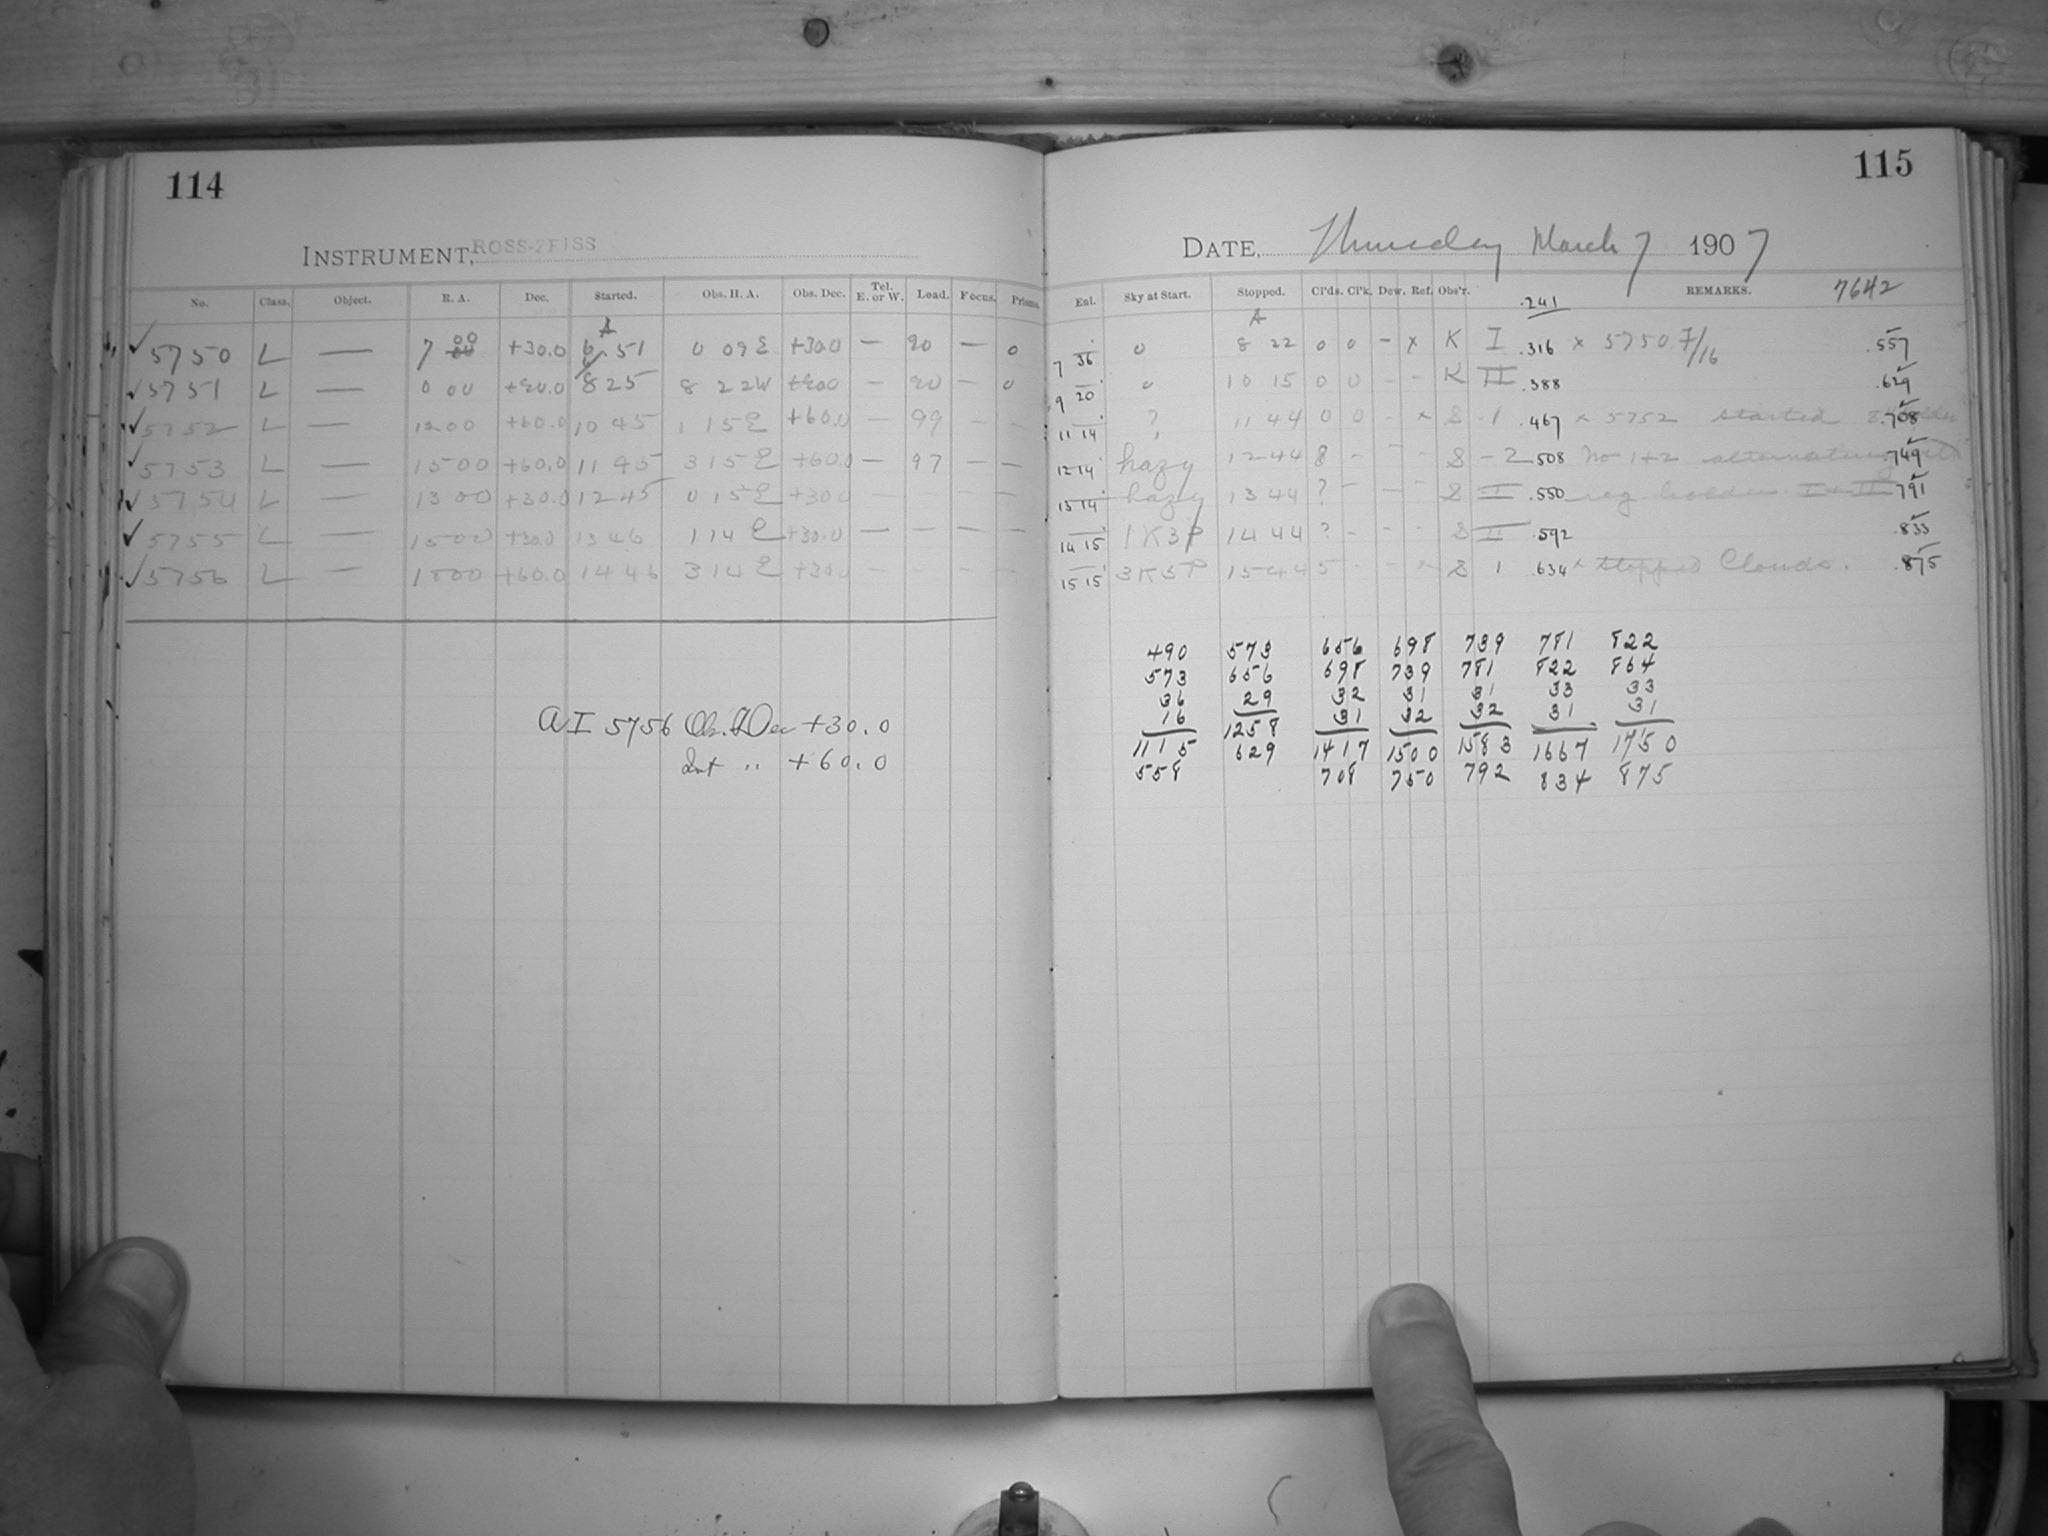 114
INSTRUMENT, ROSS-ZEISS
No. Class. Object. R. A. Dec. Started. Obs. H. A. Obs. Dec. Tel. E. or W. Load. Focus. Prisms.
A
✓5750 L — 7 00 +30.0 6 51 0 09 E +30.0 — 90 — 0
✓5751 L — 0 00 +90.0 8 25 8 22 W +90.0 — 90 — 0
✓5752 L — 12 00 +60.0 10 45 1 15 E +60.0 — 99 — —
✓5753 L — 15 00 +60.0 11 45 3 15 E +60.0 — 97 — —
✓5754 L — 13 00 +30.0 12 45 0 15 E +30.0 — — — —
✓5755 L — 15 00 +30.0 13 46 1 14 E +30.0 — — — —
✓5756 L — 18 00 +60.0 14 46 3 14 E +30.0 — — — —
AI 5756 Obs. Dec +30.0
Int " +60.0
115
DATE, Thursday March 7 1907
Eat. Sky at Start. Stopped. Cl'ds. Cl'k. Dew. Ref. Obs'r. REMARKS. 7642
.241
A
7 36 0 8 22 0 0 - x K I .316 x 5750 7/16 .557
9 20 0 10 15 0 0 - - K II .388 .629
11 14 ? 11 44 0 0 - x S 1 .467 x 5752 started .708
12 14 hazy 12 44 8 - - - S - 2 .508 No 1+2 alternating .749
13 14 hazy 13 44 ? - - - S I .550 reg. holder I + II 791
14 15 1K3P 14 44 ? - - - S II .592 .833
15 15 3K5P 15 44 5 - - x S 1 .634 x stopped Clouds. .875
490 573 656 698 739 781 822
573 656 698 739 781 822 864
36 29 32 31 31 33 33
16 1258 31 32 32 31 31
1115 629 1417 1500 1583 1667 1750
558 708 750 792 834 875